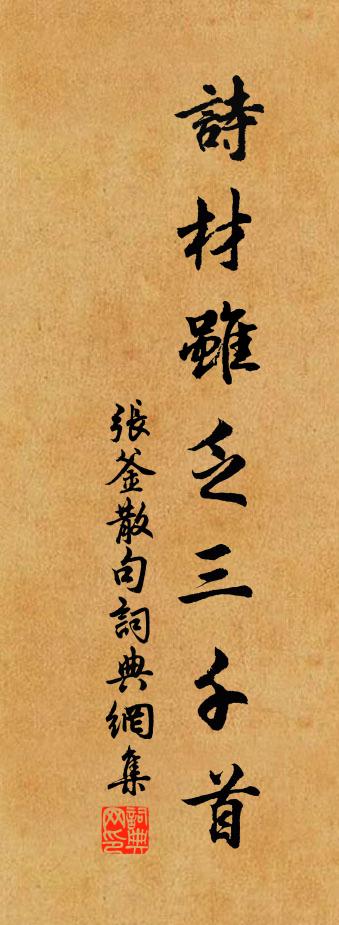 詩材雖乏三千首
張釜散句詞典網集
詞典
网印